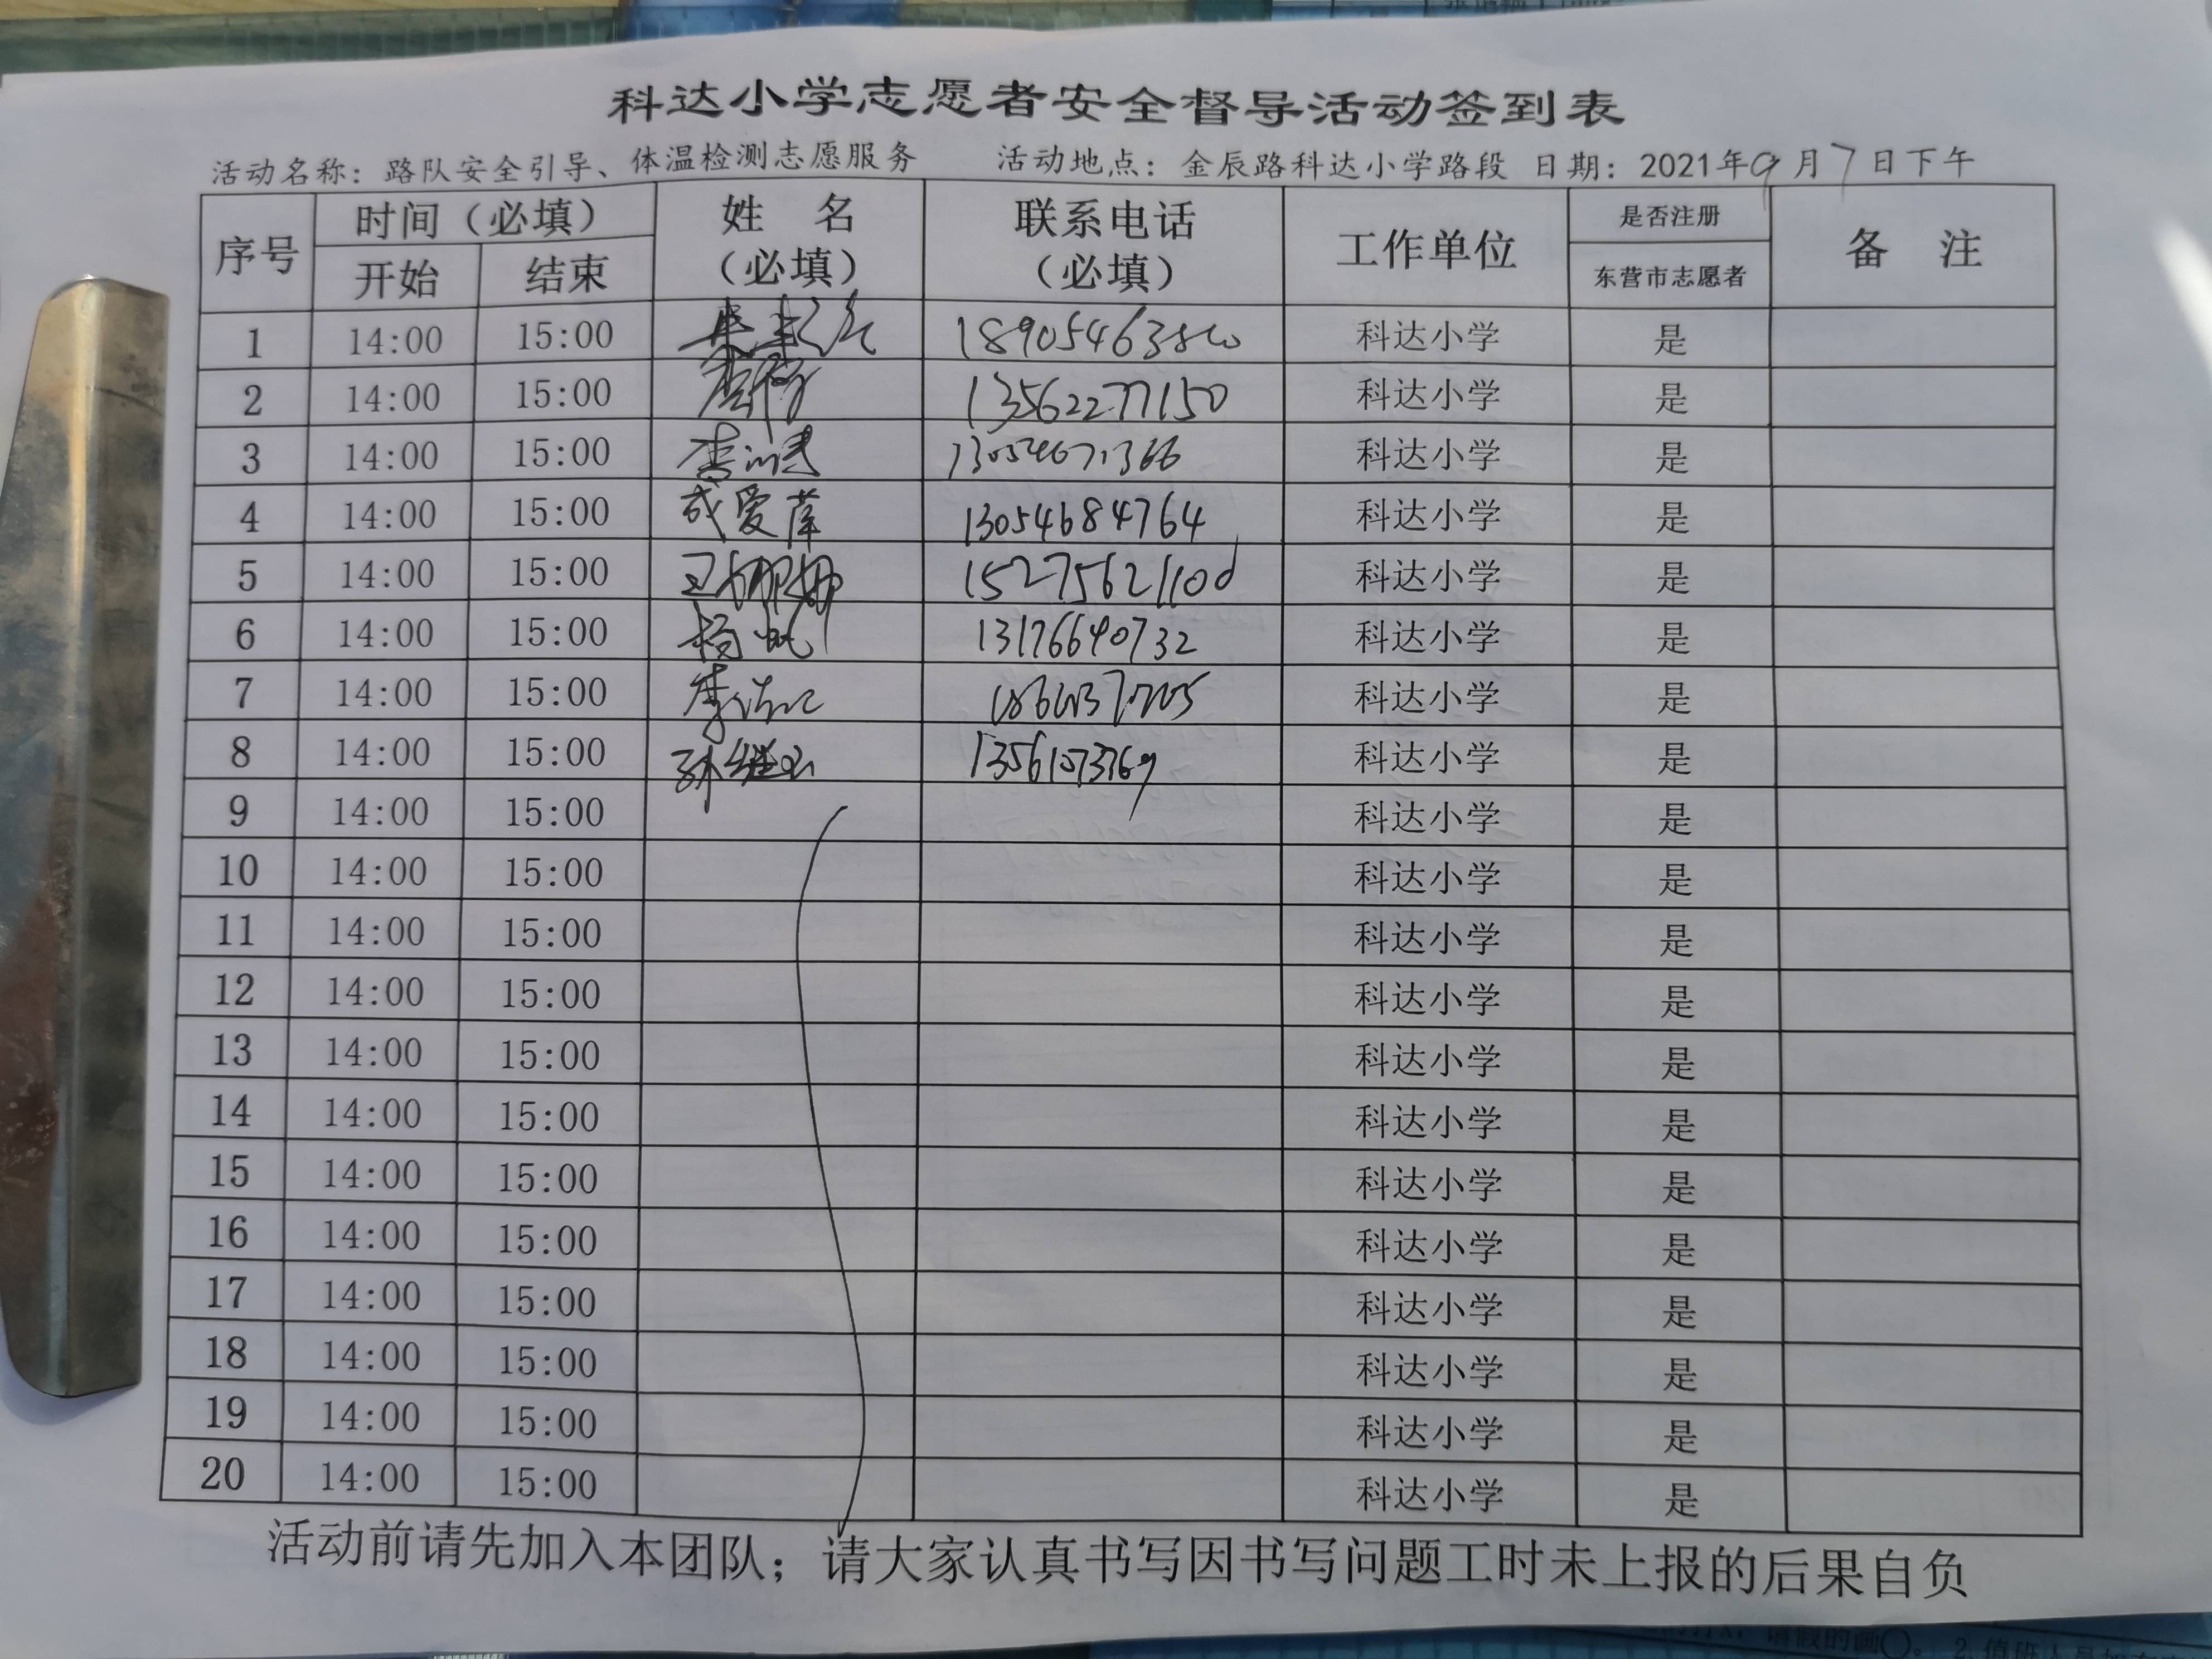 科达小学志愿者安全督导活动签到表
活动名称：路队安全引导、体温检测志愿服务 活动地点：金辰路科达小学路段 日期：2021年9月7日下午
序号 时间（必填） 姓 名（必填） 联系电话（必填） 工作单位 是否注册 备 注
开始 结束 东营市志愿者
1 14:00 15:00 科达小学 是
2 14:00 15:00 13562277150 科达小学 是
3 14:00 15:00 13054671366 科达小学 是
4 14:00 15:00 成爱萍 13054684764 科达小学 是
5 14:00 15:00 王娜娜 15275621100 科达小学 是
6 14:00 15:00 杨帆 13176640732 科达小学 是
7 14:00 15:00 科达小学 是
8 14:00 15:00 13561573769 科达小学 是
9 14:00 15:00 科达小学 是
10 14:00 15:00 科达小学 是
11 14:00 15:00 科达小学 是
12 14:00 15:00 科达小学 是
13 14:00 15:00 科达小学 是
14 14:00 15:00 科达小学 是
15 14:00 15:00 科达小学 是
16 14:00 15:00 科达小学 是
17 14:00 15:00 科达小学 是
18 14:00 15:00 科达小学 是
19 14:00 15:00 科达小学 是
20 14:00 15:00 科达小学 是
活动前请先加入本团队；请大家认真书写因书写问题工时未上报的后果自负